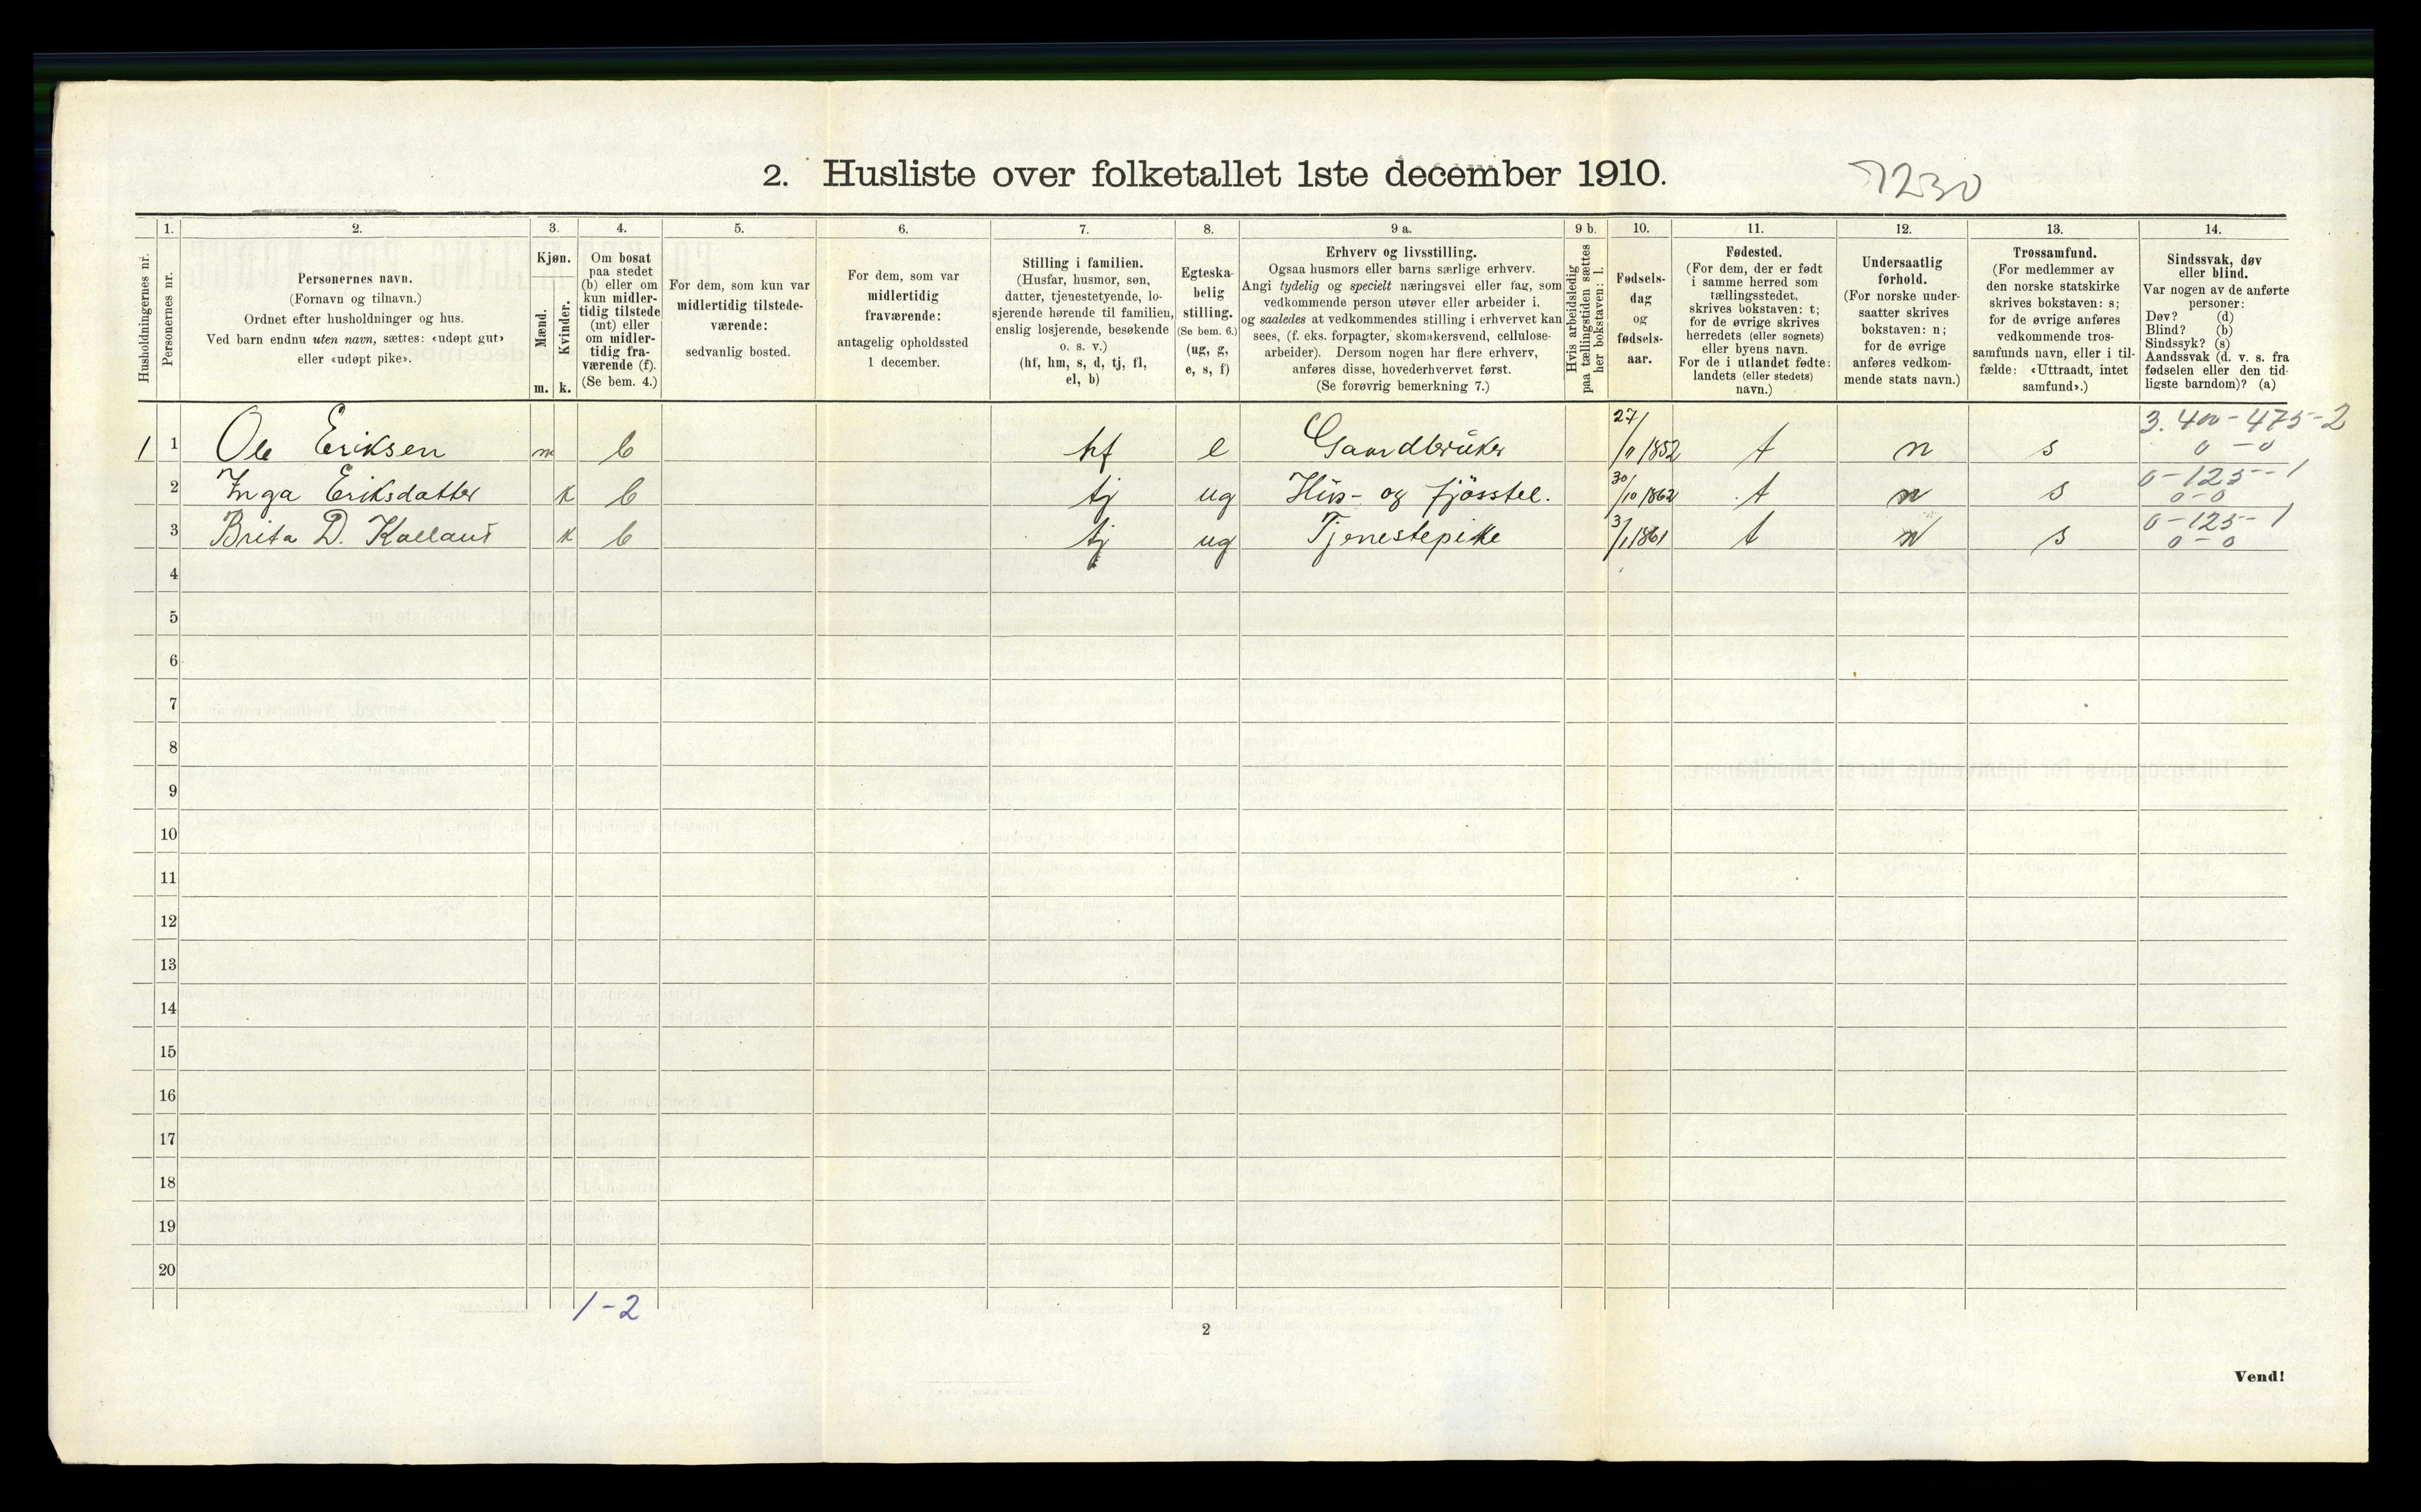 2. Husliste over folketallet 1ste december 1910.
7230
Husholdningernes nr.
1.
Personernes nr.
2.
Personernes navn.
(Fornavn og tilnavn.)
Ordnet efter husholdninger og hus.
Ved barn endnu uten navn, sættes: «udøpt gut»
eller «udøpt pike».
3.
Kjøn.
Mænd.
Kvinder.
m.
k.
4.
Om bosat
paa stedet
(b) eller om
kun midler-
tidig tilstede
(mt) eller
om midler-
tidig fra-
værende (f).
(Se bem. 4.)
5.
For dem, som kun var
midlertidig tilstede-
værende:
sedvanlig bosted.
6.
For dem, som var
midlertidig
fraværende:
antagelig opholdssted
1 december.
7.
Stilling i familien.
(Husfar, husmor, søn,
datter, tjenestetyende, lo-
sjerende hørende til familien,
enslig losjerende, besøkende
o. s. v.)
(hf, hm, s, d, tj, fl,
el, b)
8.
Egteska-
belig
stilling.
(Se bem. 6.)
(ug, g,
e, s, f)
9 a.
Erhverv og livsstilling.
Ogsaa husmors eller barns særlige erhverv.
Angi tydelig og specielt næringsvei eller fag, som
vedkommende person utøver eller arbeider i,
og saaledes at vedkommendes stilling i erhvervet kan
sees, (f. eks. forpagter, skomakersvend, cellulose-
arbeider). Dersom nogen har flere erhverv,
anføres disse, hovederhvervet først.
(Se forøvrig bemerkning 7.)
9 b.
Hvis arbeidsledig
paa tællingstiden sættes
her bokstaven: l.
10.
Fødsels-
dag
og
fødsels-
aar.
11.
Fødested.
(For dem, der er født
i samme herred som
tællingsstedet,
skrives bokstaven: t;
for de øvrige skrives
herredets (eller sognets)
eller byens navn.
For de i utlandet fødte:
landets (eller stedets)
navn.)
12.
Undersaatlig
forhold.
(For norske under-
saatter skrives
bokstaven: n;
for de øvrige
anføres vedkom-
mende stats navn.)
13.
Trossamfund.
(For medlemmer av
den norske statskirke
skrives bokstaven: s;
for de øvrige anføres
vedkommende tros-
samfunds navn, eller i til-
fælde: «Uttraadt, intet
samfund».)
14.
Sindssvak, døv
eller blind.
Var nogen av de anførte
personer:
Døv? (d)
Blind? (b)
Sindssyk? (s)
Aandssvak (d. v. s. fra
fødselen eller den tid-
ligste barndom)? (a)
3.400-475-2
1 1 Ole Eriksen m b hf e Gaardbruker 27/11 1852 t n s 0-0
0-125-1
2 Inga Eriksdatter k b tj ug Hus- og fjösstel. 30/10 1862 t n s 0-0
0-125-1
3 Brita D. Kalland k b tj ug Tjenestepike 3/1 1861 t n s 0-0
4
5
6
7
8
9
10
11
12
13
14
15
16
17
18
19
20
1-2
2
Vend!